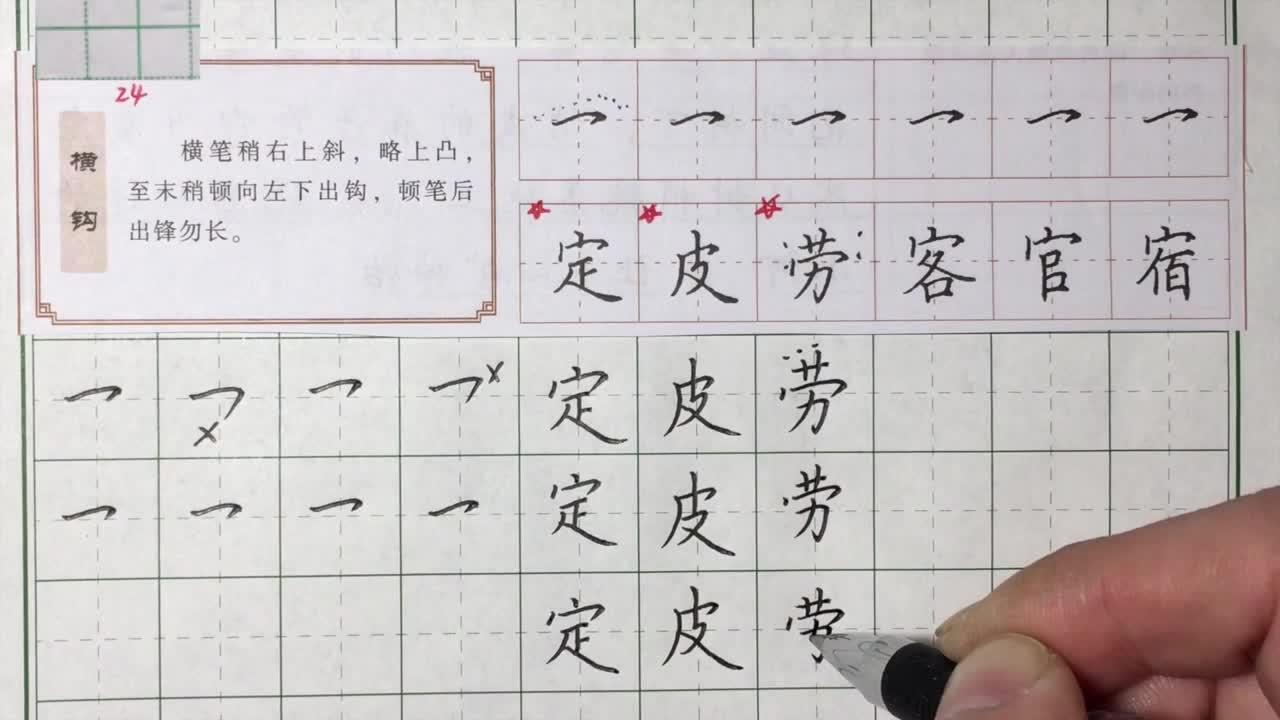 24
横钩
横笔稍右上斜，略上凸，
至末稍顿向左下出钩，顿笔后
出锋勿长。
㇖ ㇖ ㇖ ㇖ ㇖ ㇖
定 皮 劳 客 官 宿
㇖ ㇖ ㇖ ㇖ 定 皮 劳
x x
㇖ ㇖ ㇖ ㇖ 定 皮 劳
定 皮 劳